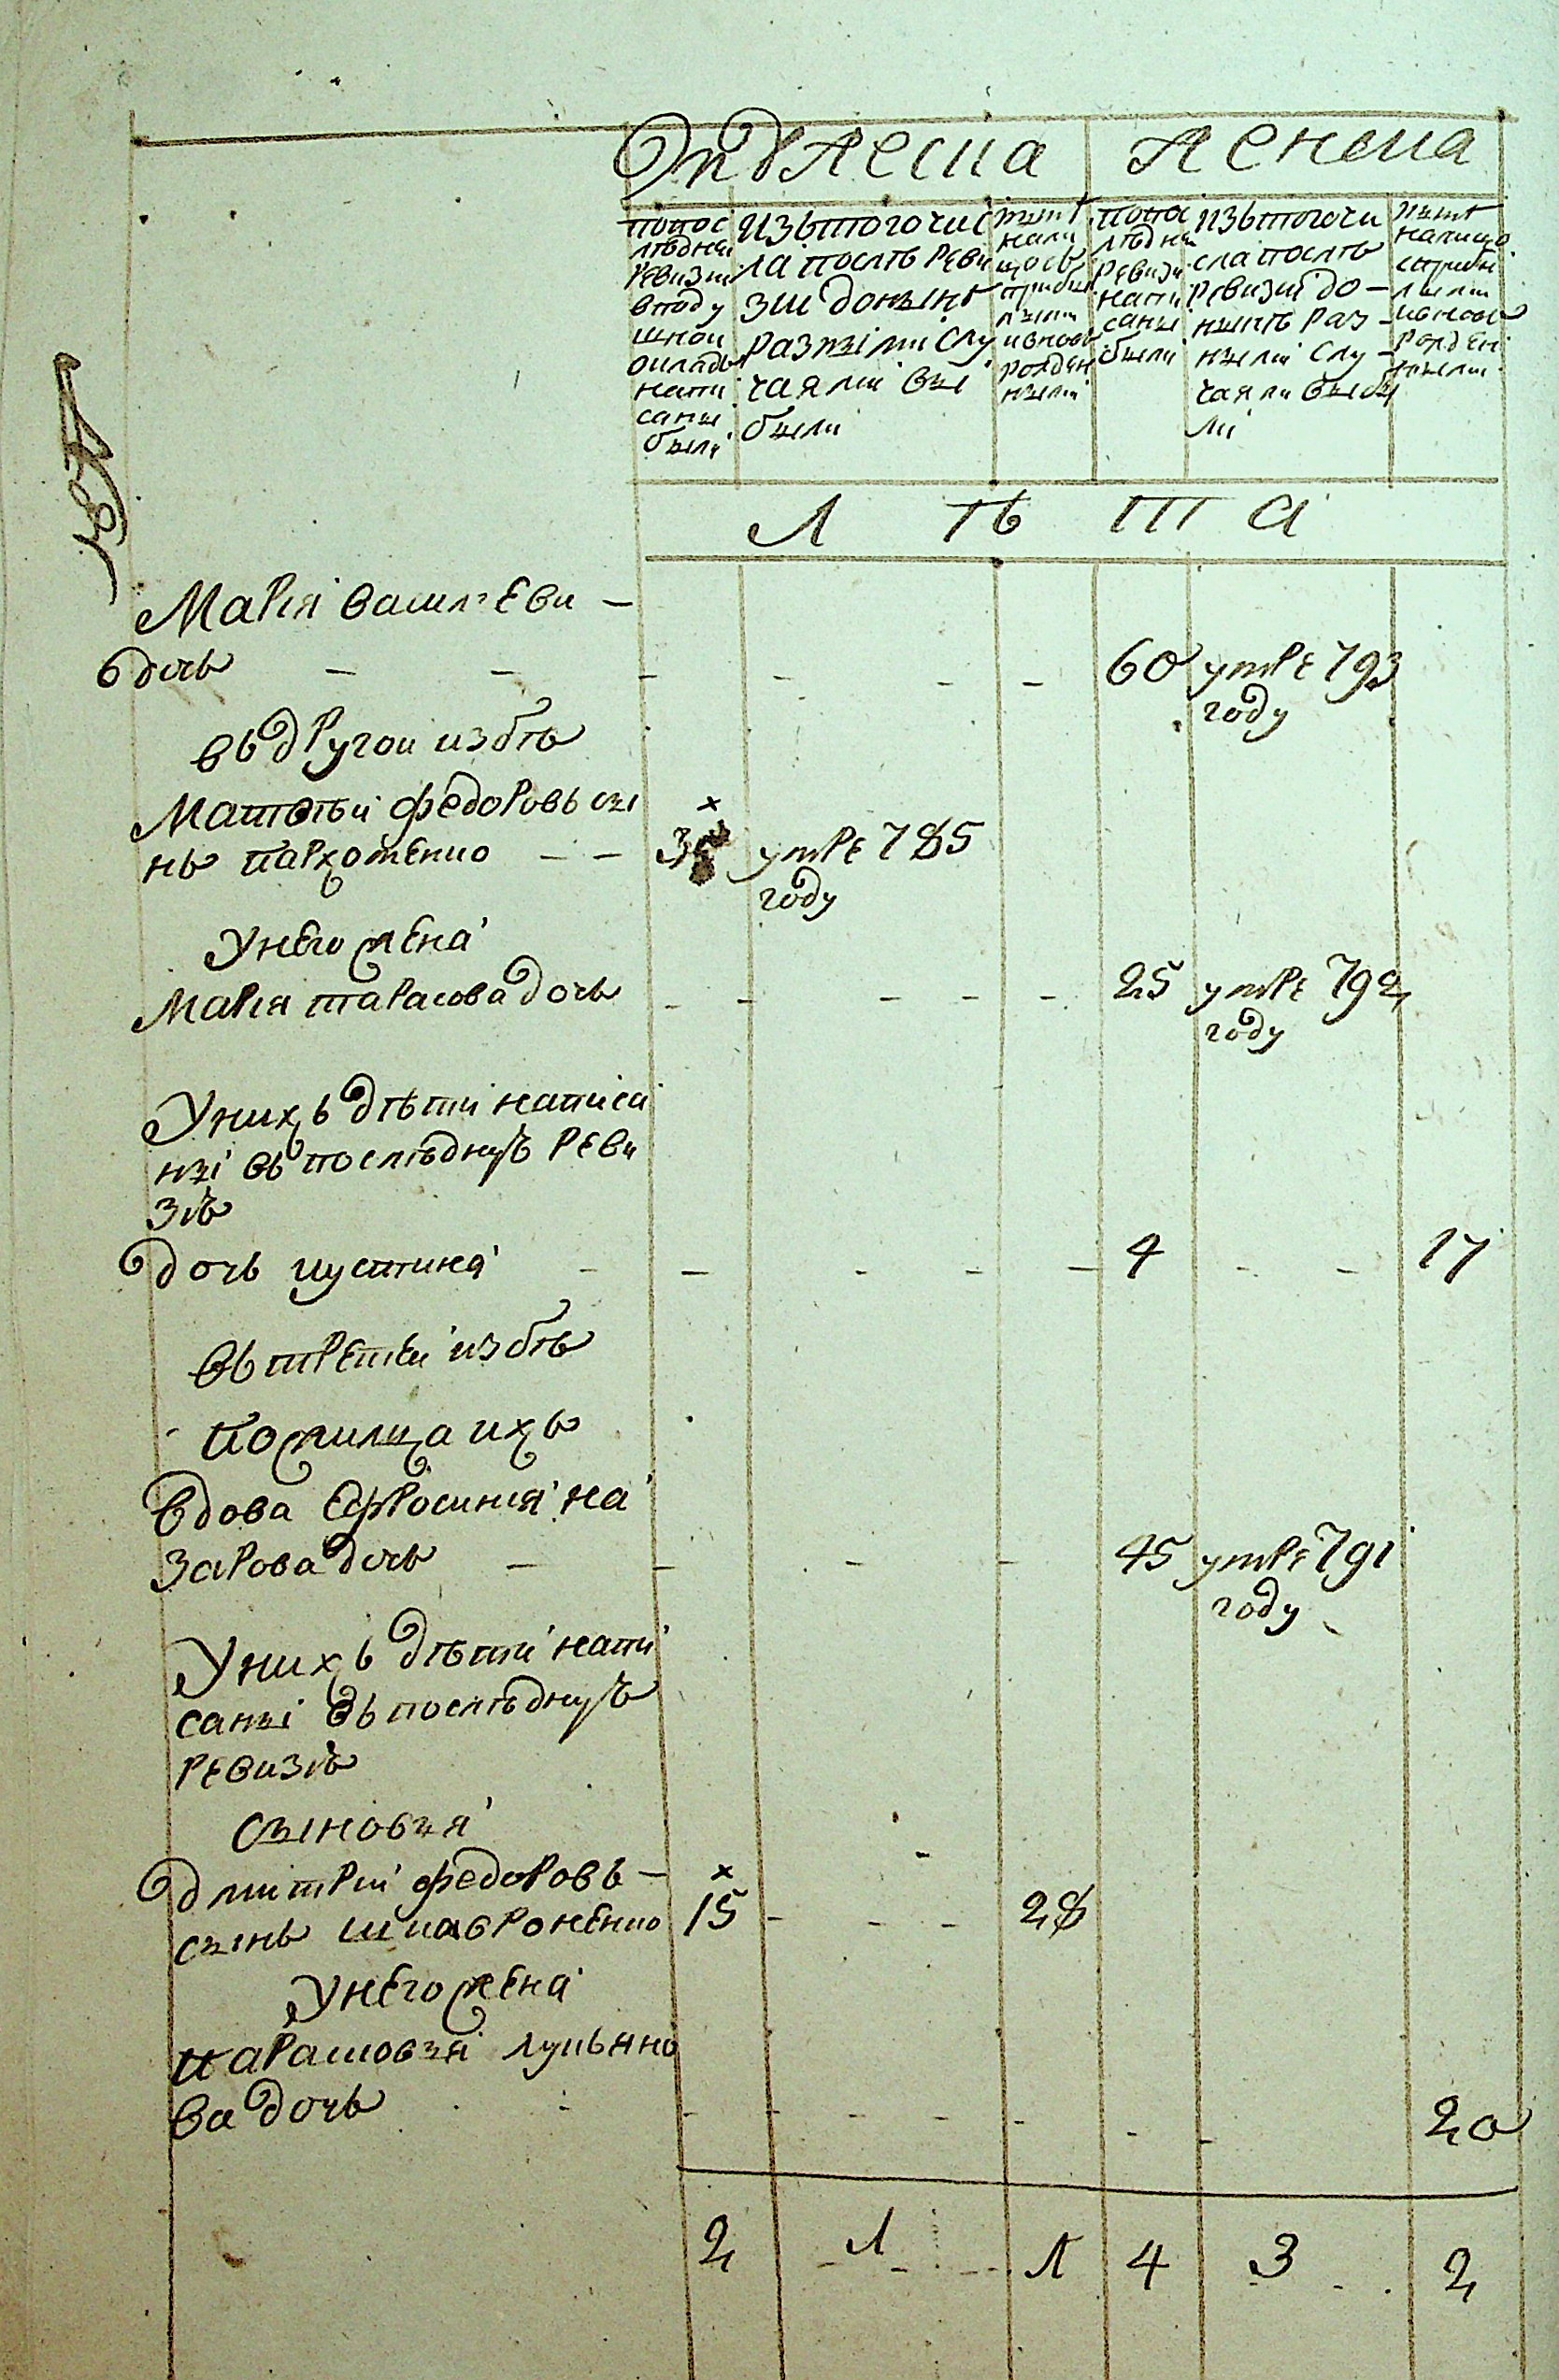 Мужеска
Женска
по пос
лѣдней
ревизи
в поду
шном
окладѣ
напи
саны
были
Изь того чис
ла послѣ реви
зии до нынѣ
разными слу
чаями вы
были
нынѣ
нали
цо съ
прибы
лыми
и вновь
рожден
ными
по по
лѣдне
ревизи
напи
саны
были
изь того чи
сла послѣ
ревизии до –
нынѣ раз –
ными слу –
чаями выбы
ли
нынѣ
налицо
с прибы
лыми
и вновь
рожден
ными
Л ѣ т а
Марія василʼеви –
дочь – – – – – – 60 умре 793
году
вь другои избѣ
Матѳѣй федоровь сы
нь пархоменко – – 35 умре 785
году
У него жена
Марія тарасова дочь – – – – – 25 умре 792
году
У нихь дѣти написа
ны вь послѣднуѣ реви
зіѣ
дочь иустина – – – – – 4 – – 17
вь третеи избѣ
Помилица ихь
вдова Ефросинія на
зарова дочь – – – – 45 умре 791
году
У нихь дѣти напи
саны вь послѣднуѣ
ревизіѣ
сыновья
дмитрий федоровь –
сынь шкавроненко 15 – – – 28
У него жена
парасковья лукьяно
ва дочь – – – – – – – 20
2 1 1 4 3 2